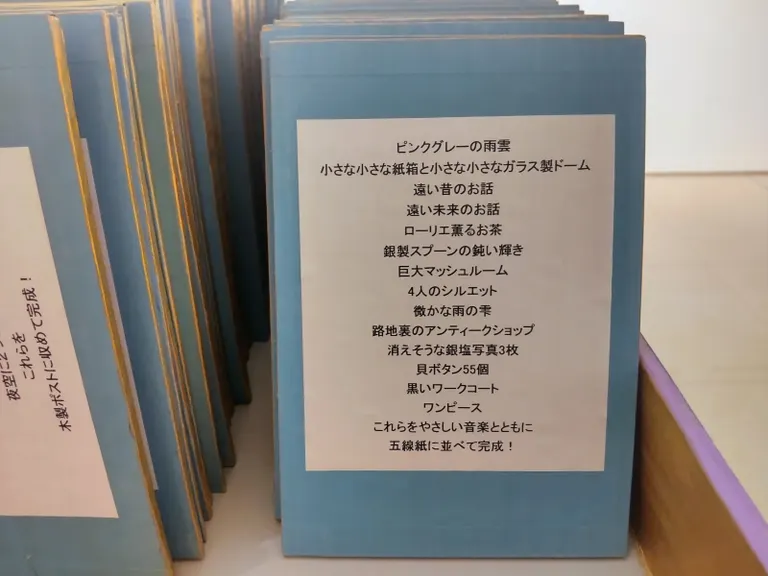 ピンクグレーの雨雲
小さな小さな紙箱と小さな小さなガラス製ドーム
遠い昔のお話
遠い未来のお話
ローリエ薫るお茶
銀製スプーンの鈍い輝き
巨大マッシュルーム
4人のシルエット
微かな雨の雫
路地裏のアンティークショップ
消えそうな銀塩写真3枚
貝ボタン55個
黒いワークコート
ワンピース
これらをやさしい音楽とともに
五線紙に並べて完成！
夜空に2つ
これらを
木製ポストに収めて完成！